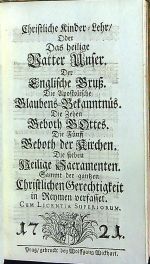 Christliche Kinder-Lehr/
Oder
Das heilige
Vatter Unser.
Der
Englische Gruß.
Die Apostolische
Glaubens-Bekanntnus.
Die Zehen
Geboth GOttes.
Die Fünff
Geboth der Kirchen.
Die sieben
Heilige Sacramenten.
Sammt der gantzen
Christlichen Gerechtigkeit
in Reymen verfasset.
CUM LICENTIA SUPERIORUM.
1721.
Prag/ gedruckt bey Wolffgang Wickhart.